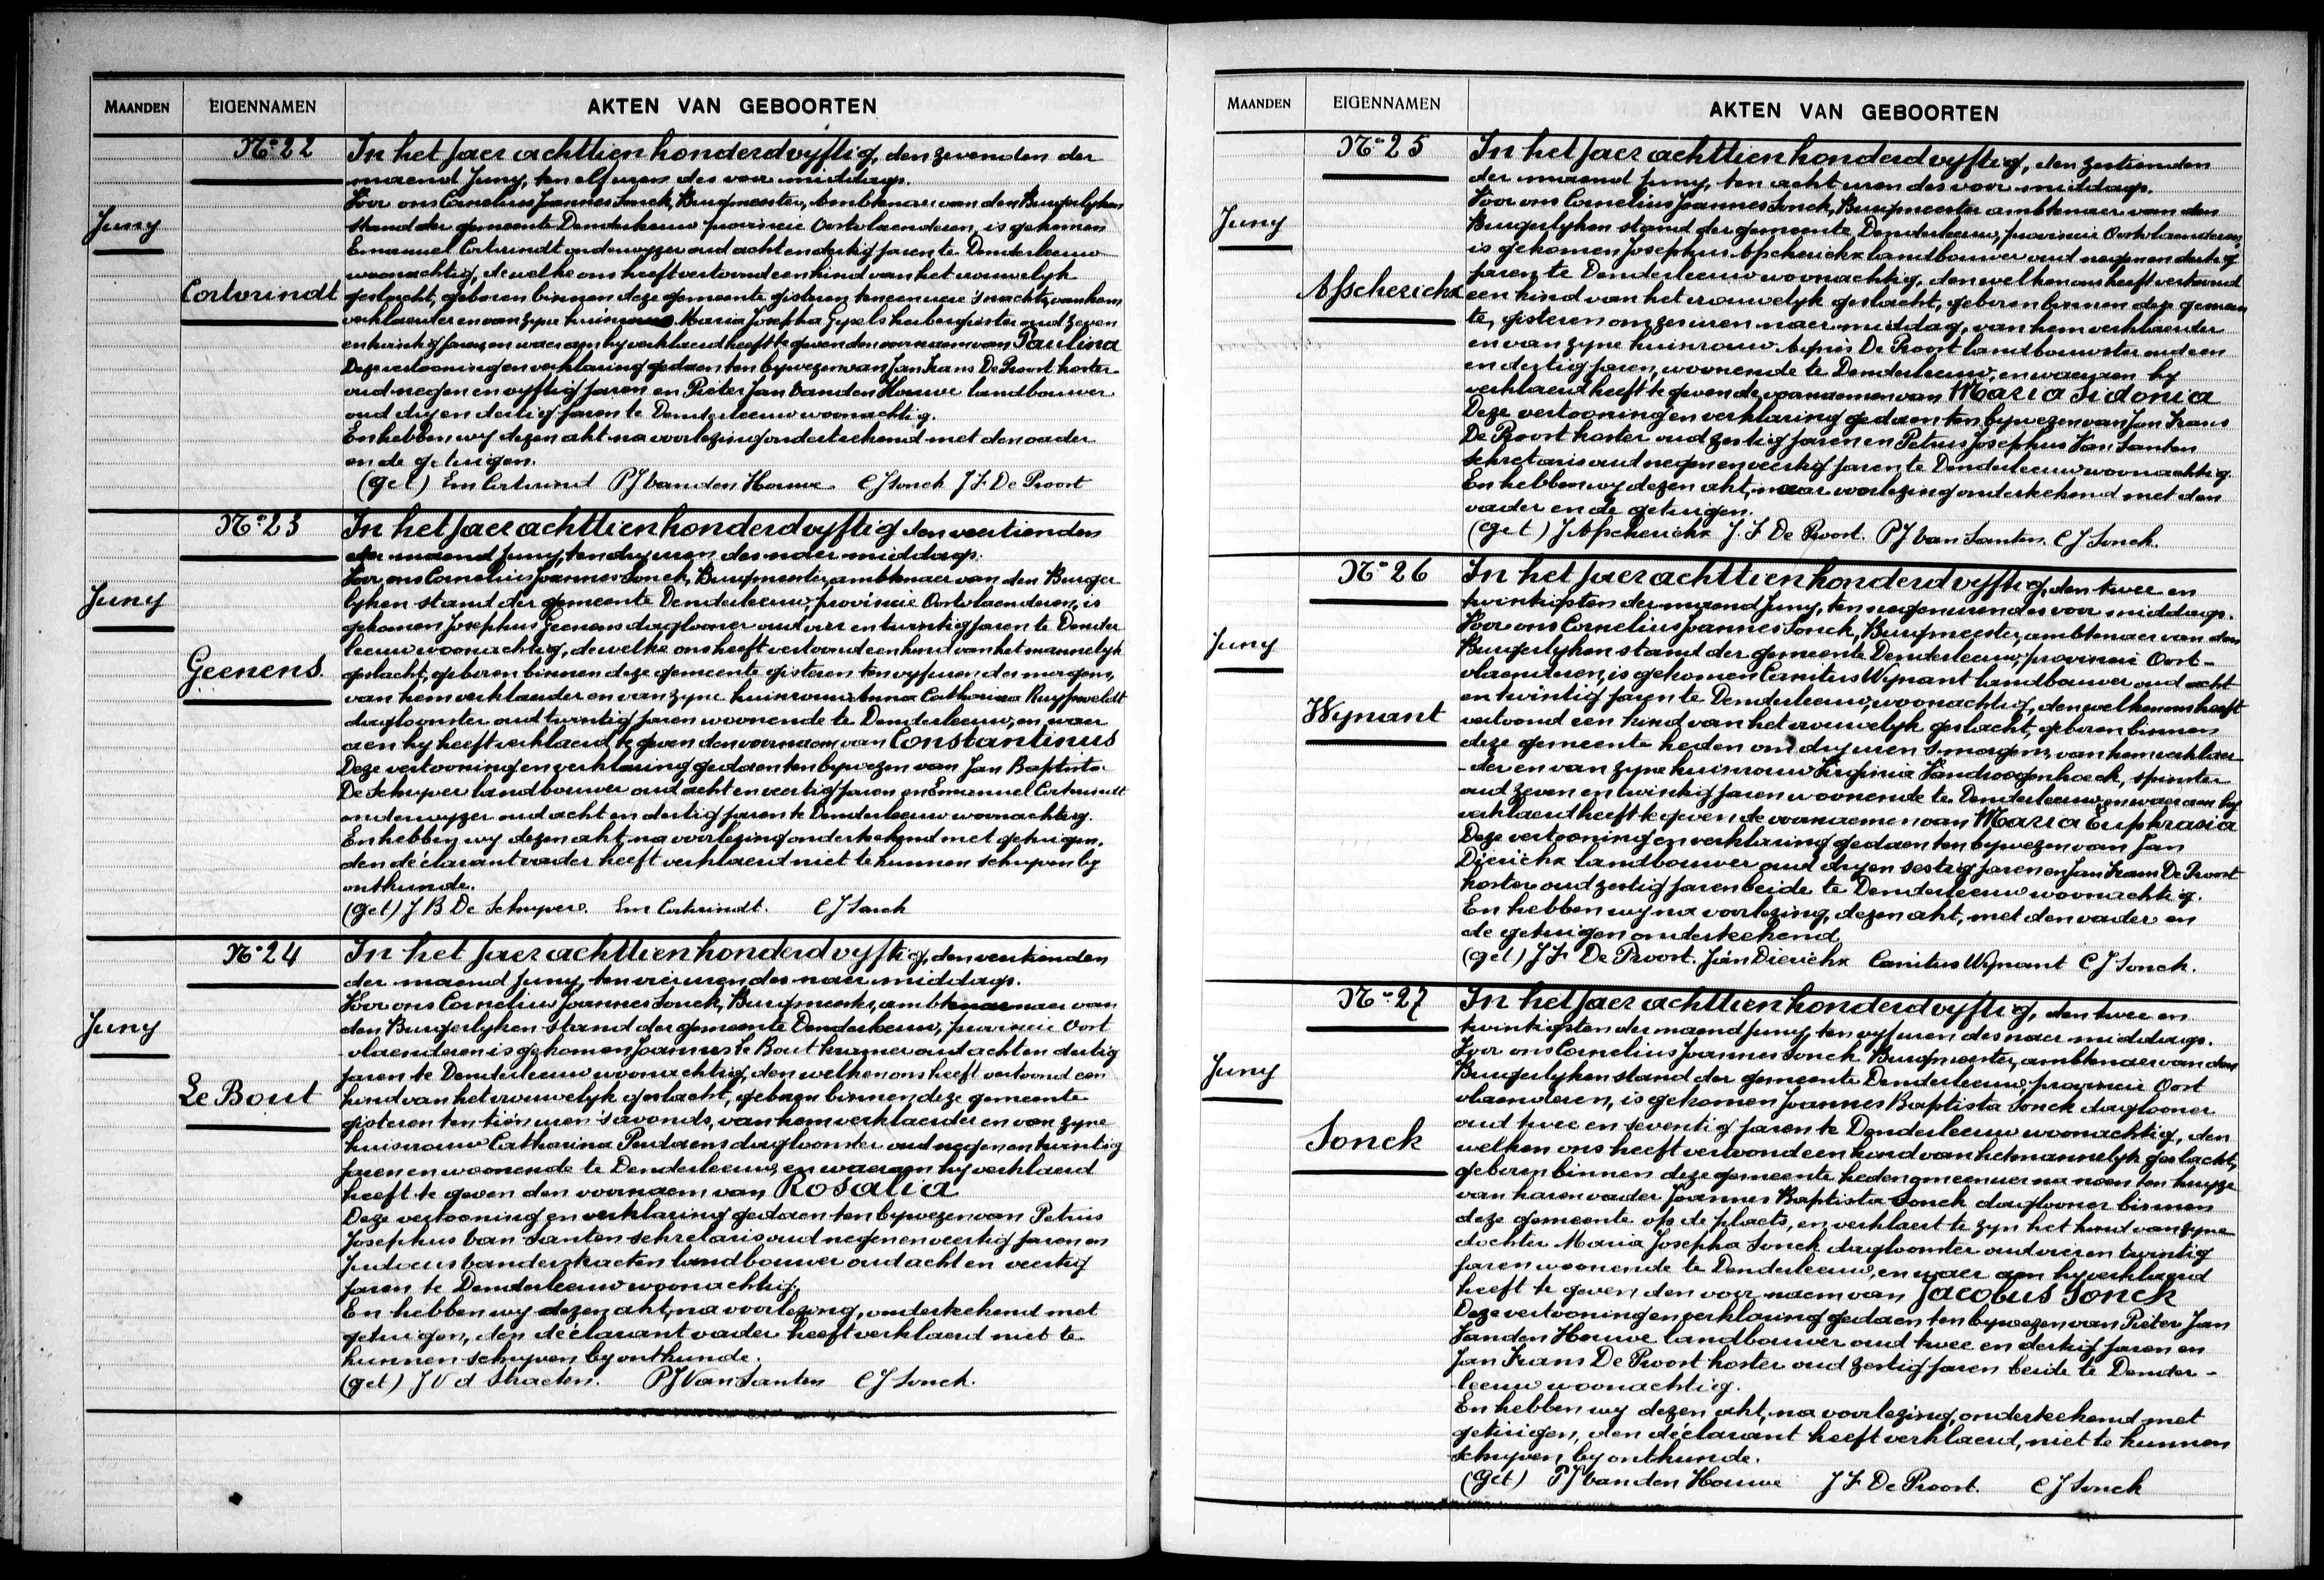 MAANDEN EIGENNAMEN AKTEN VAN GEBOORTEN
No 22
Juny
Cortvrindt
In het Jaer achttien honderd vyftig, den zevenden der
maend Juny, ten elf uren des voor middags.
Voor ons Cornelius Joannes Sonck, Burgmeester, Ambtenaer van den Burgerlyken
Stand der gemeente Denderleeuw provincie Oostvlaenderen, is gekomen
Emanuel Cortvrindt onderwyzer oud acht en dertig jaren te Denderleeuw
woonachtig, dewelke ons heeft vertoond een kind van het vrouwelyk
geslacht, geboren binnen deze gemeente gisteren ten een ure 's nachts, van hem
verklaerder en van zyne huisvrouw Maria Josepha Gysels herbergierster oud zeven
en twintig jaren, en waeraen hy verklaerd heeft te geven den voornaem van Paulina
Deze vertooning en verklaring gedaen ten bywezen van Jan Frans De Proost koster
oud negen en vyftig jaren en Pieter Jan Vanden Houwe landbouwer
oud dry en dertig jaren te Denderleeuw woonachtig.
En hebben wy dezen akt na voorlezing onderteekend met den vader
en de getuigen.
(get) Em Cortvrind PJ Vanden Houwe CJ Sonck J F De Proost
No 23
Juny
Geenens
In het Jaer achttien honderd vyftig den veertienden
der maend Juny, ten dry uren des naer middags.
Voor ons Cornelius Joannes Sonck, Burgmeester, ambtenaer van den Burger
lyken stand der gemeente Denderleeuw, provincie Oostvlaenderen, is
gekomen Josephus Geenens daglooner oud vier en twintig jaren te Dender
leeuw woonachtig, dewelke ons heeft vertoond een kind van het mannelyk
geslacht, geboren binnen deze gemeente gisteren ten vyf uren des morgens,
van hem verklaerder en van zyne huisvrouw Anna Catharina
dagloonster oud twintig jaren woonende te Denderleeuw, en waer
aen hy heeft verklaerd te geven den voornaem van Constantinus
Deze vertooning en verklaring gedaen ten bywezen van Jan Baptiste
De Schryver landbouwer oud acht en veertig jaren en Emanuel Cortvrindt
onderwyzer oud acht en dertig jaren te Denderleeuw woonachtig.
En hebben wy dezen akt, na voorlezing onderteekend met getuigen,
den déclarant vader heeft verklaerd niet te kunnen schryven by
onkunde.
(get) J B De Schryver. Em Cortvrindt. CJ Sonck
No 24
Juny
Le Bout
In het Jaer achttien honderd vyftig, den veertienden
der maend Juny, ten vier uren des naer middags.
Voor ons Cornelius Joannes Sonck, Burgmeester, ambtenaer van
den Burgerlyken stand der gemeente Denderleeuw, provincie Oost
vlaenderen is gekomen Joannes Le Bout kramer oud acht en dertig
jaren te Denderleeuw woonachtig, den welken ons heeft vertoond een
kind van het vrouwelyk geslacht, geboren binnen deze gemeente
gisteren ten tien uren 's avonds, van hem verklaerder en van zyne
huisvrouw Catharina Perdaens dagloonster oud negen en twintig
jaren en woonende te Denderleeuw, en waeraen hy verklaerd
heeft te geven den voornaem van Rosalia
Deze vertooning en verklaring gedaen ten bywezen van Petrus
Josephus Van Santen sekretaris oud negen en veertig jaren en
Judocus Vanderstraeten landbouwer oud acht en veertig
jaren te Denderleeuw woonachtig,
En hebben wy dezen akt, na voorlezing, onderteekend met
getuigen, den déclarant vader heeft verklaerd niet te
kunnen schryven by onkunde.
(get) J V d Straeten. PJ Van Santen CJ Sonck.
MAANDEN EIGENNAMEN AKTEN VAN GEBOORTEN
No 25
Juny
Afscherickx
In het Jaer achttien honderd vyftig, den zestienden
der maend Juny, ten acht uren des voor middags.
Voor ons Cornelius Joannes Sonck, Burgmeester ambtenaer van den
Burgerlyken stand der gemeente Denderleeuw, provincie Oostvlaenderen,
is gekomen Josephus Afscherickx landbouwer oud negen en dertig
jaren, te Denderleeuw woonachtig, den welken ons heeft vertoond
een kind van het vrouwelyk geslacht, geboren binnen deze gemeen
te, gisteren om zes uren naer middag, van hem verklaerder
en van zyne huisvrouw Agnes De Proost landbouwster oud een
en dertig jaren, woonende te Denderleeuw, en waeraen hy
verklaerd heeft te geven de voornaemen van Maria Sidonia
Deze vertooning en verklaring gedaen ten bywezen van Jan Frans
De Proost koster oud zestig jaren en Petrus Josephus Van Santen
sekretaris oud negen en veertig jaren te Denderleeuw woonachtig.
En hebben wy dezen akt, naer voorlezing onderteekend met den
vader en de getuigen.
(get) J Afscherickx J. F De Proost. PJ Van Santen. CJ Sonck.
No 26
Juny
Wynant
In het Jaer achttien honderd vyftig, den twee en
twintigsten der maend Juny, ten negen uren des voor middags.
Voor ons Cornelius Joannes Sonck, Burgmeester, ambtenaer van den
Burgerlyken stand der gemeente Denderleeuw, provincie Oost-
vlaenderen, is gekomen Canitus Wynant landbouwer oud acht
en twintig jaren te Denderleeuw, woonachtig, den welken ons heeft
vertoond een kind van het vrouwelyk geslacht, geboren binnen
deze gemeente heden om dry uren 's morgens, van hem verklaer
der en van zyne huisvrouw Virginia Vandroogenbroeck, spinster
oud zeven en twintig jaren woonende te Denderleeuw en waeraen hy
verklaerd heeft te geven de voornaemen van Maria Euphrasia
Deze vertooning en verklaring gedaen ten bywezen van Jan
Dierickx landbouwer oud dry en sestig jaren en Jan Frans De Proost
koster oud zestig jaren beide te Denderleeuw woonachtig.
En hebben wy na voorlezing, dezen akt, met den vader en
de getuigen onderteekend.
(get) J F De Proost. Jan Dierickx Canitus Wynant CJ Sonck.
No 27
Juny
Sonck
In het Jaer achttien honderd vyftig, den twee en
twintigsten der maend Juny, ten vyf uren des naer middags.
Voor ons Cornelius Joannes Sonck Burgmeester, ambtenaer van den
Burgerlyken stand der gemeente Denderleeuw, provincie Oost
vlaenderen, is gekomen Joannes Baptista Sonck daglooner
oud twee en seventig jaren te Denderleeuw woonachtig, den
welken ons heeft vertoond een kind van het mannelyk geslacht,
geboren binnen deze gemeente heden om een uer na noen ten huyze
van haren vader Joannes Baptista Sonck daglooner binnen
deze gemeente op de plaets, en verklaert te zyn het kind van zyne
dochter Maria Josepha Sonck dagloonster oud vier en twintig
jaren woonende te Denderleeuw, en waer aen hy verklaerd
heeft te geven den voor naem van Jacobus Sonck
Deze vertooning en verklaring gedaen ten bywezen van Pieter Jan
Vanden Houwe landbouwer oud twee en dertig jaren en
Jan Frans De Proost koster oud zestig jaren beide te Dender-
leeuw woonachtig.
En hebben wy dezen akt, na voorlezing, onderteekend met
getuigen, den déclarant heeft verklaerd, niet te kunnen
schryven, by onkunde.
(get) PJ Vanden Houwe J F De Proost. CJ Sonck